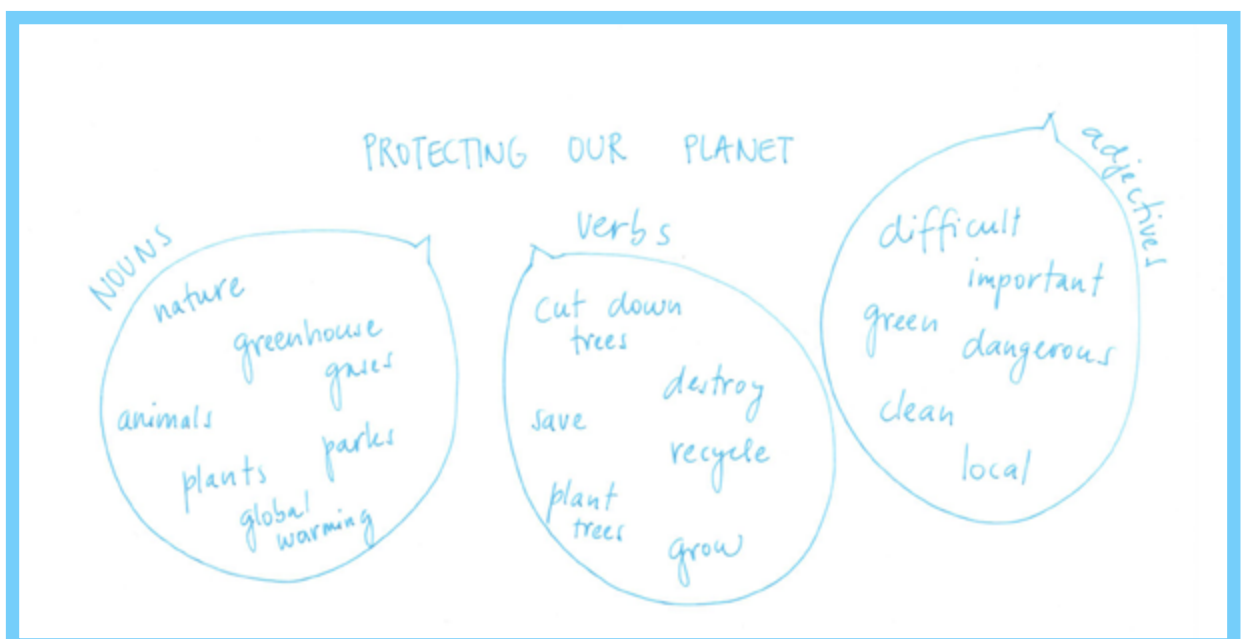 PROTECTING OUR PLANET
NOUNS
nature
greenhouse
gases
animals
parks
plants
global
warming
verbs
cut down
trees
destroy
save
recycle
plant
trees
grow
adjectives
difficult
important
green
dangerous
clean
local